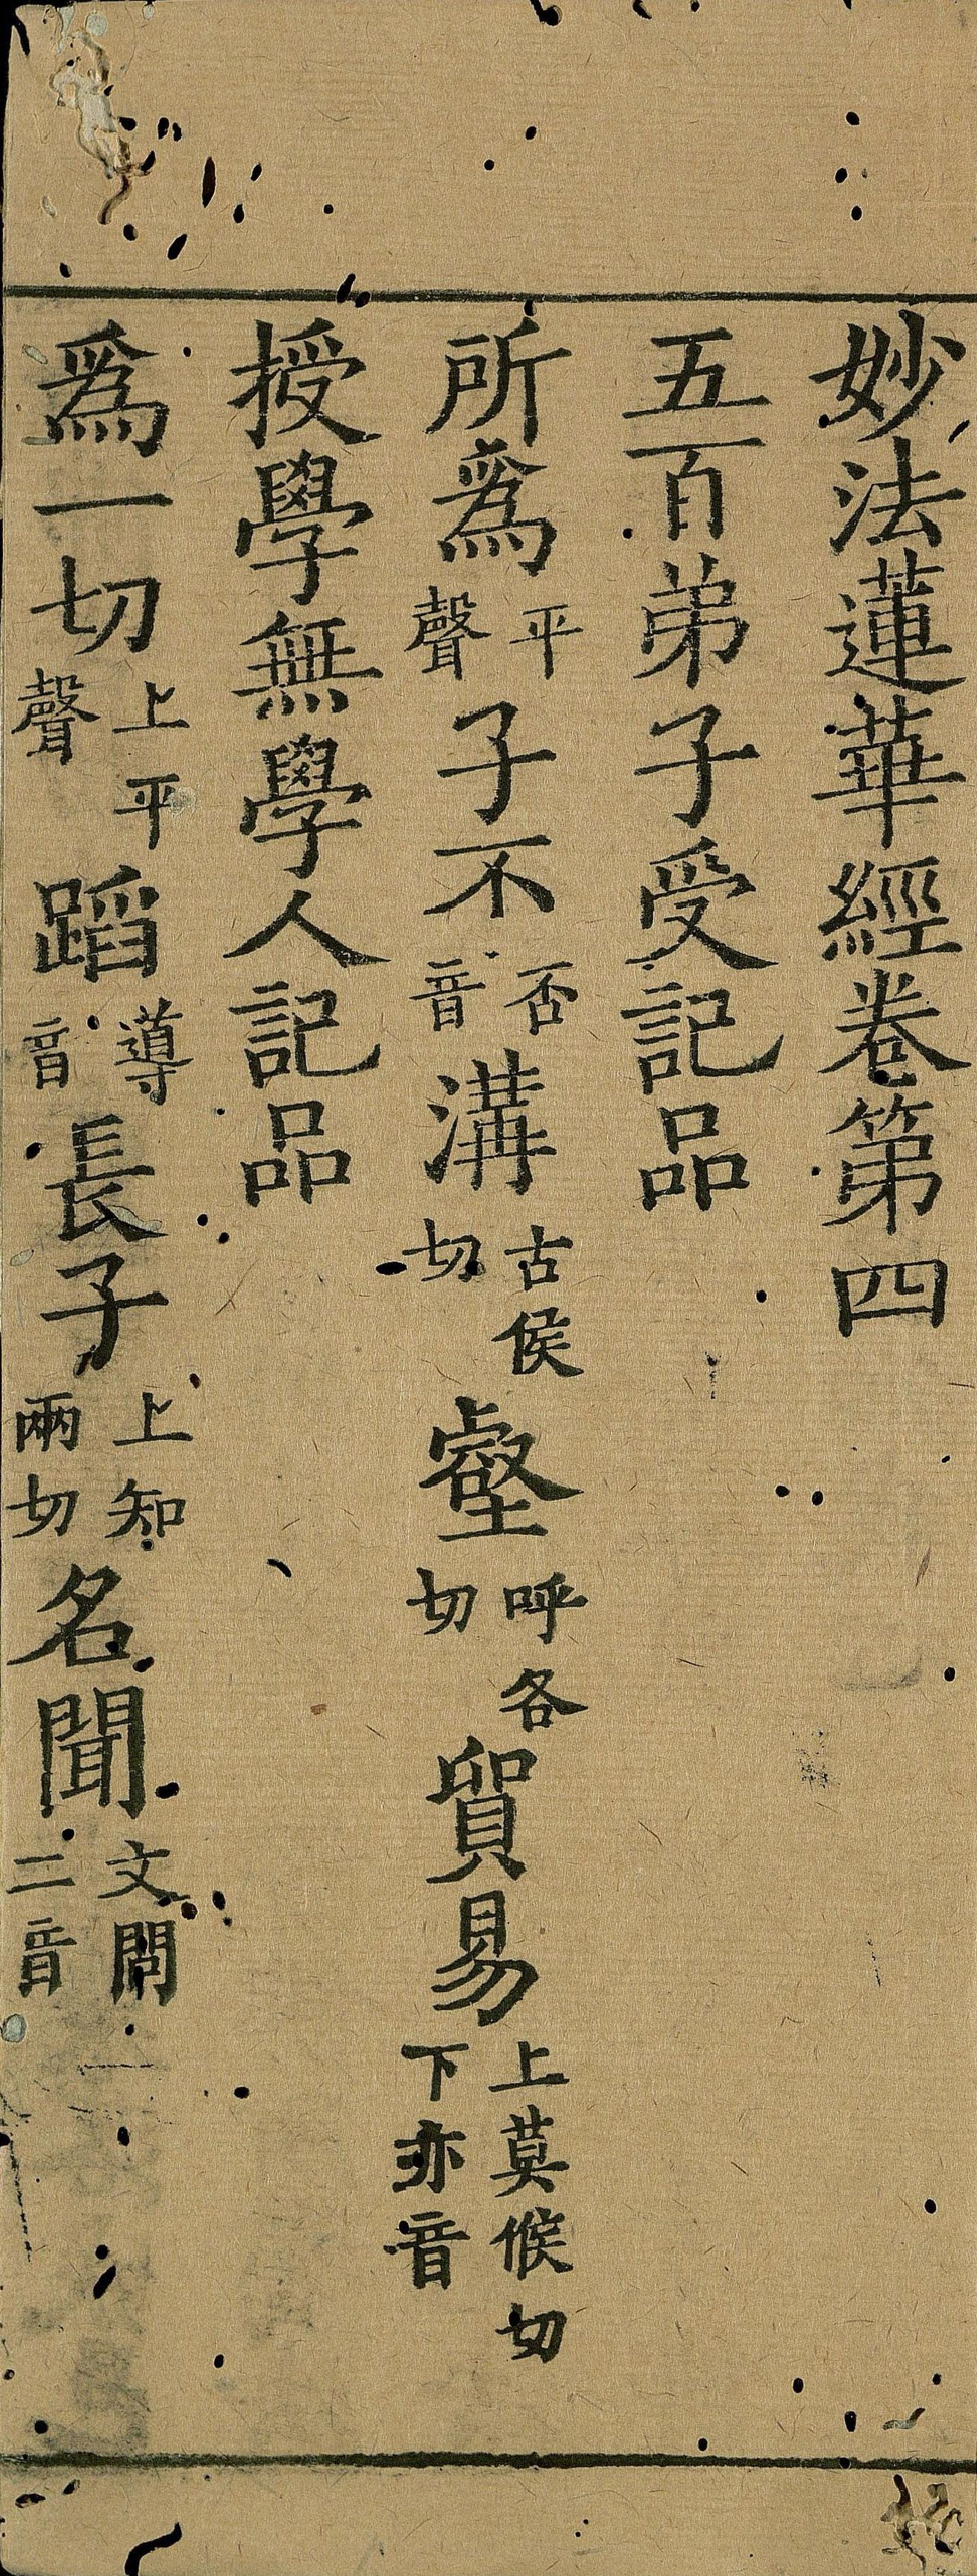 妙法蓮華經卷第四
五百弟子受記品
所爲平聲子不否音溝古侯切壑呼各切貿易上莫候切下亦音
授學無學人記品
爲一切上平聲蹈導音長子上知兩切名聞文問二音